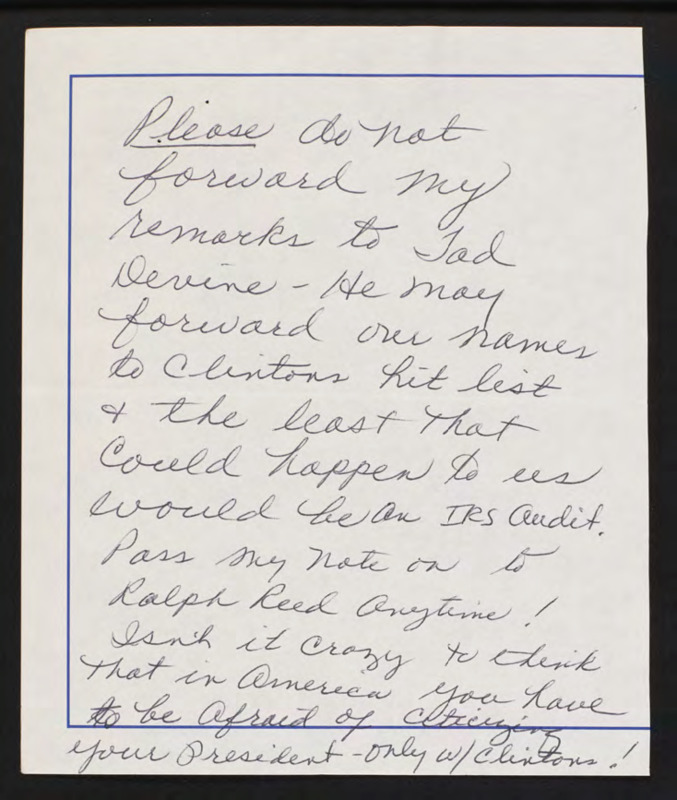 Please do not
forward my
remarks to Tad
Devine - He may
forward our names
to Clintons hit list
& the least that
could happen to us
would be an IRS Audit.
Pass my note on to
Ralph Reed Anytime!
Isn't it crazy to think
that in America you have
to be Afraid of citicizing
your President - only w/ Clintons!